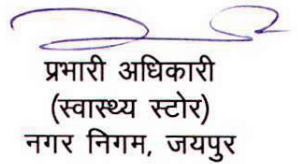 प्रभारी अधिकारी
(स्वास्थ्य स्टोर)
नगर निगम, जयपुर